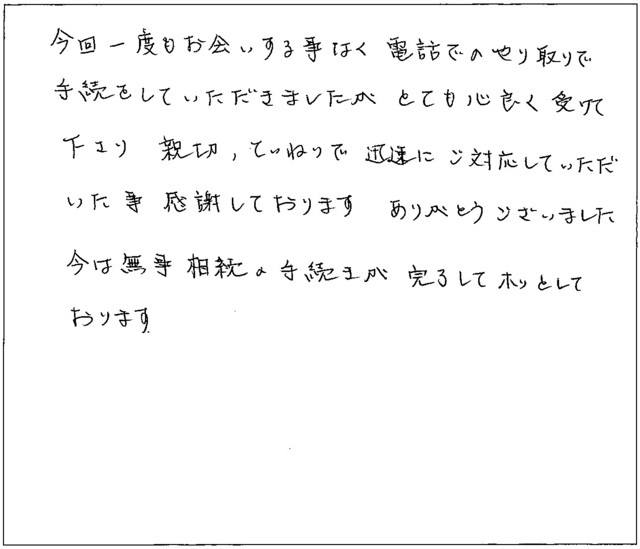 今回一度もお会いする事なく電話でのやり取りで
手続をしていただきましたが とても心良く受けて
下さり 親切、ていねいで迅速にご対応していただ
いた事 感謝しております ありがとうございました
今は無事相続の手続きが完了してホッとして
おります